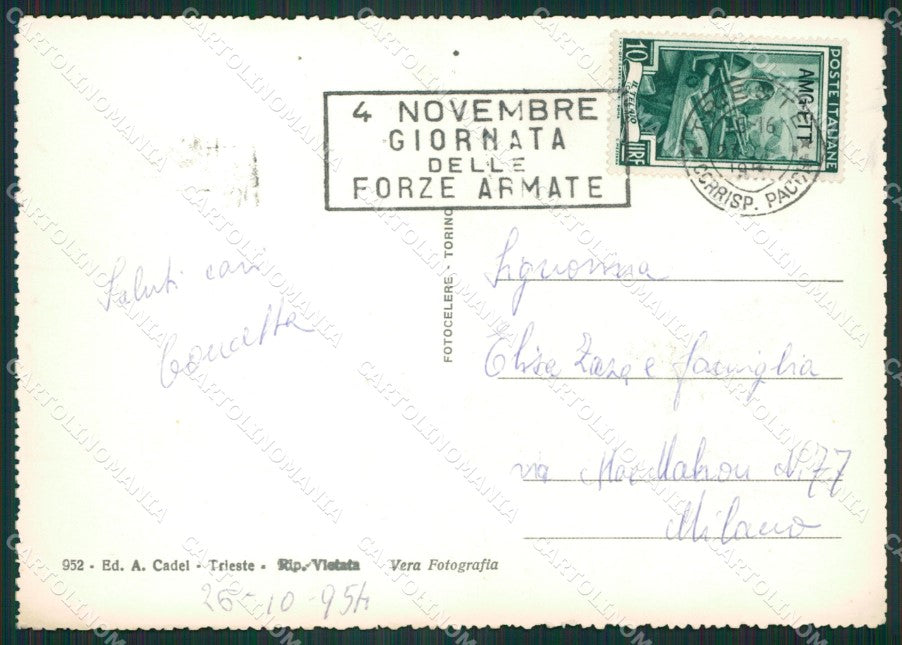 4 NOVEMBRE
GIORNATA
DELLE
FORZE ARMATE
10 LIRE
POSTE ITALIANE
AMG-FTT
CORRISP. PACCHI
FOTOCELERE - TORINO
Saluti cari
Concetta
Signorina
Elisa Zaza e famiglia
via Mac Mahon N. 77
Milano
952 - Ed. A. Cadel - Trieste - Rip. Vietata Vera Fotografia
26-10-954
CARTOLINOMANIA